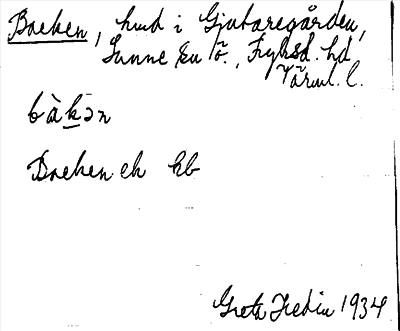 Backen, hmd i Gjutaregården,
Sunne sn Ö., Fryksd. hd
Värml. l.
bàkən
Backen ek kb
Greta Hedin 1934